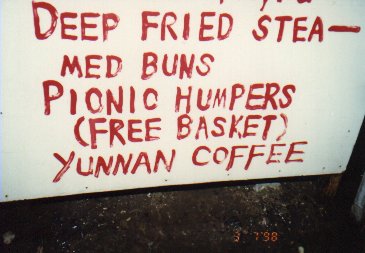 DEEP FRIED STEA—
MED BUNS
PIONIC HUMPERS
(FREE BASKET)
YUNNAN COFFEE